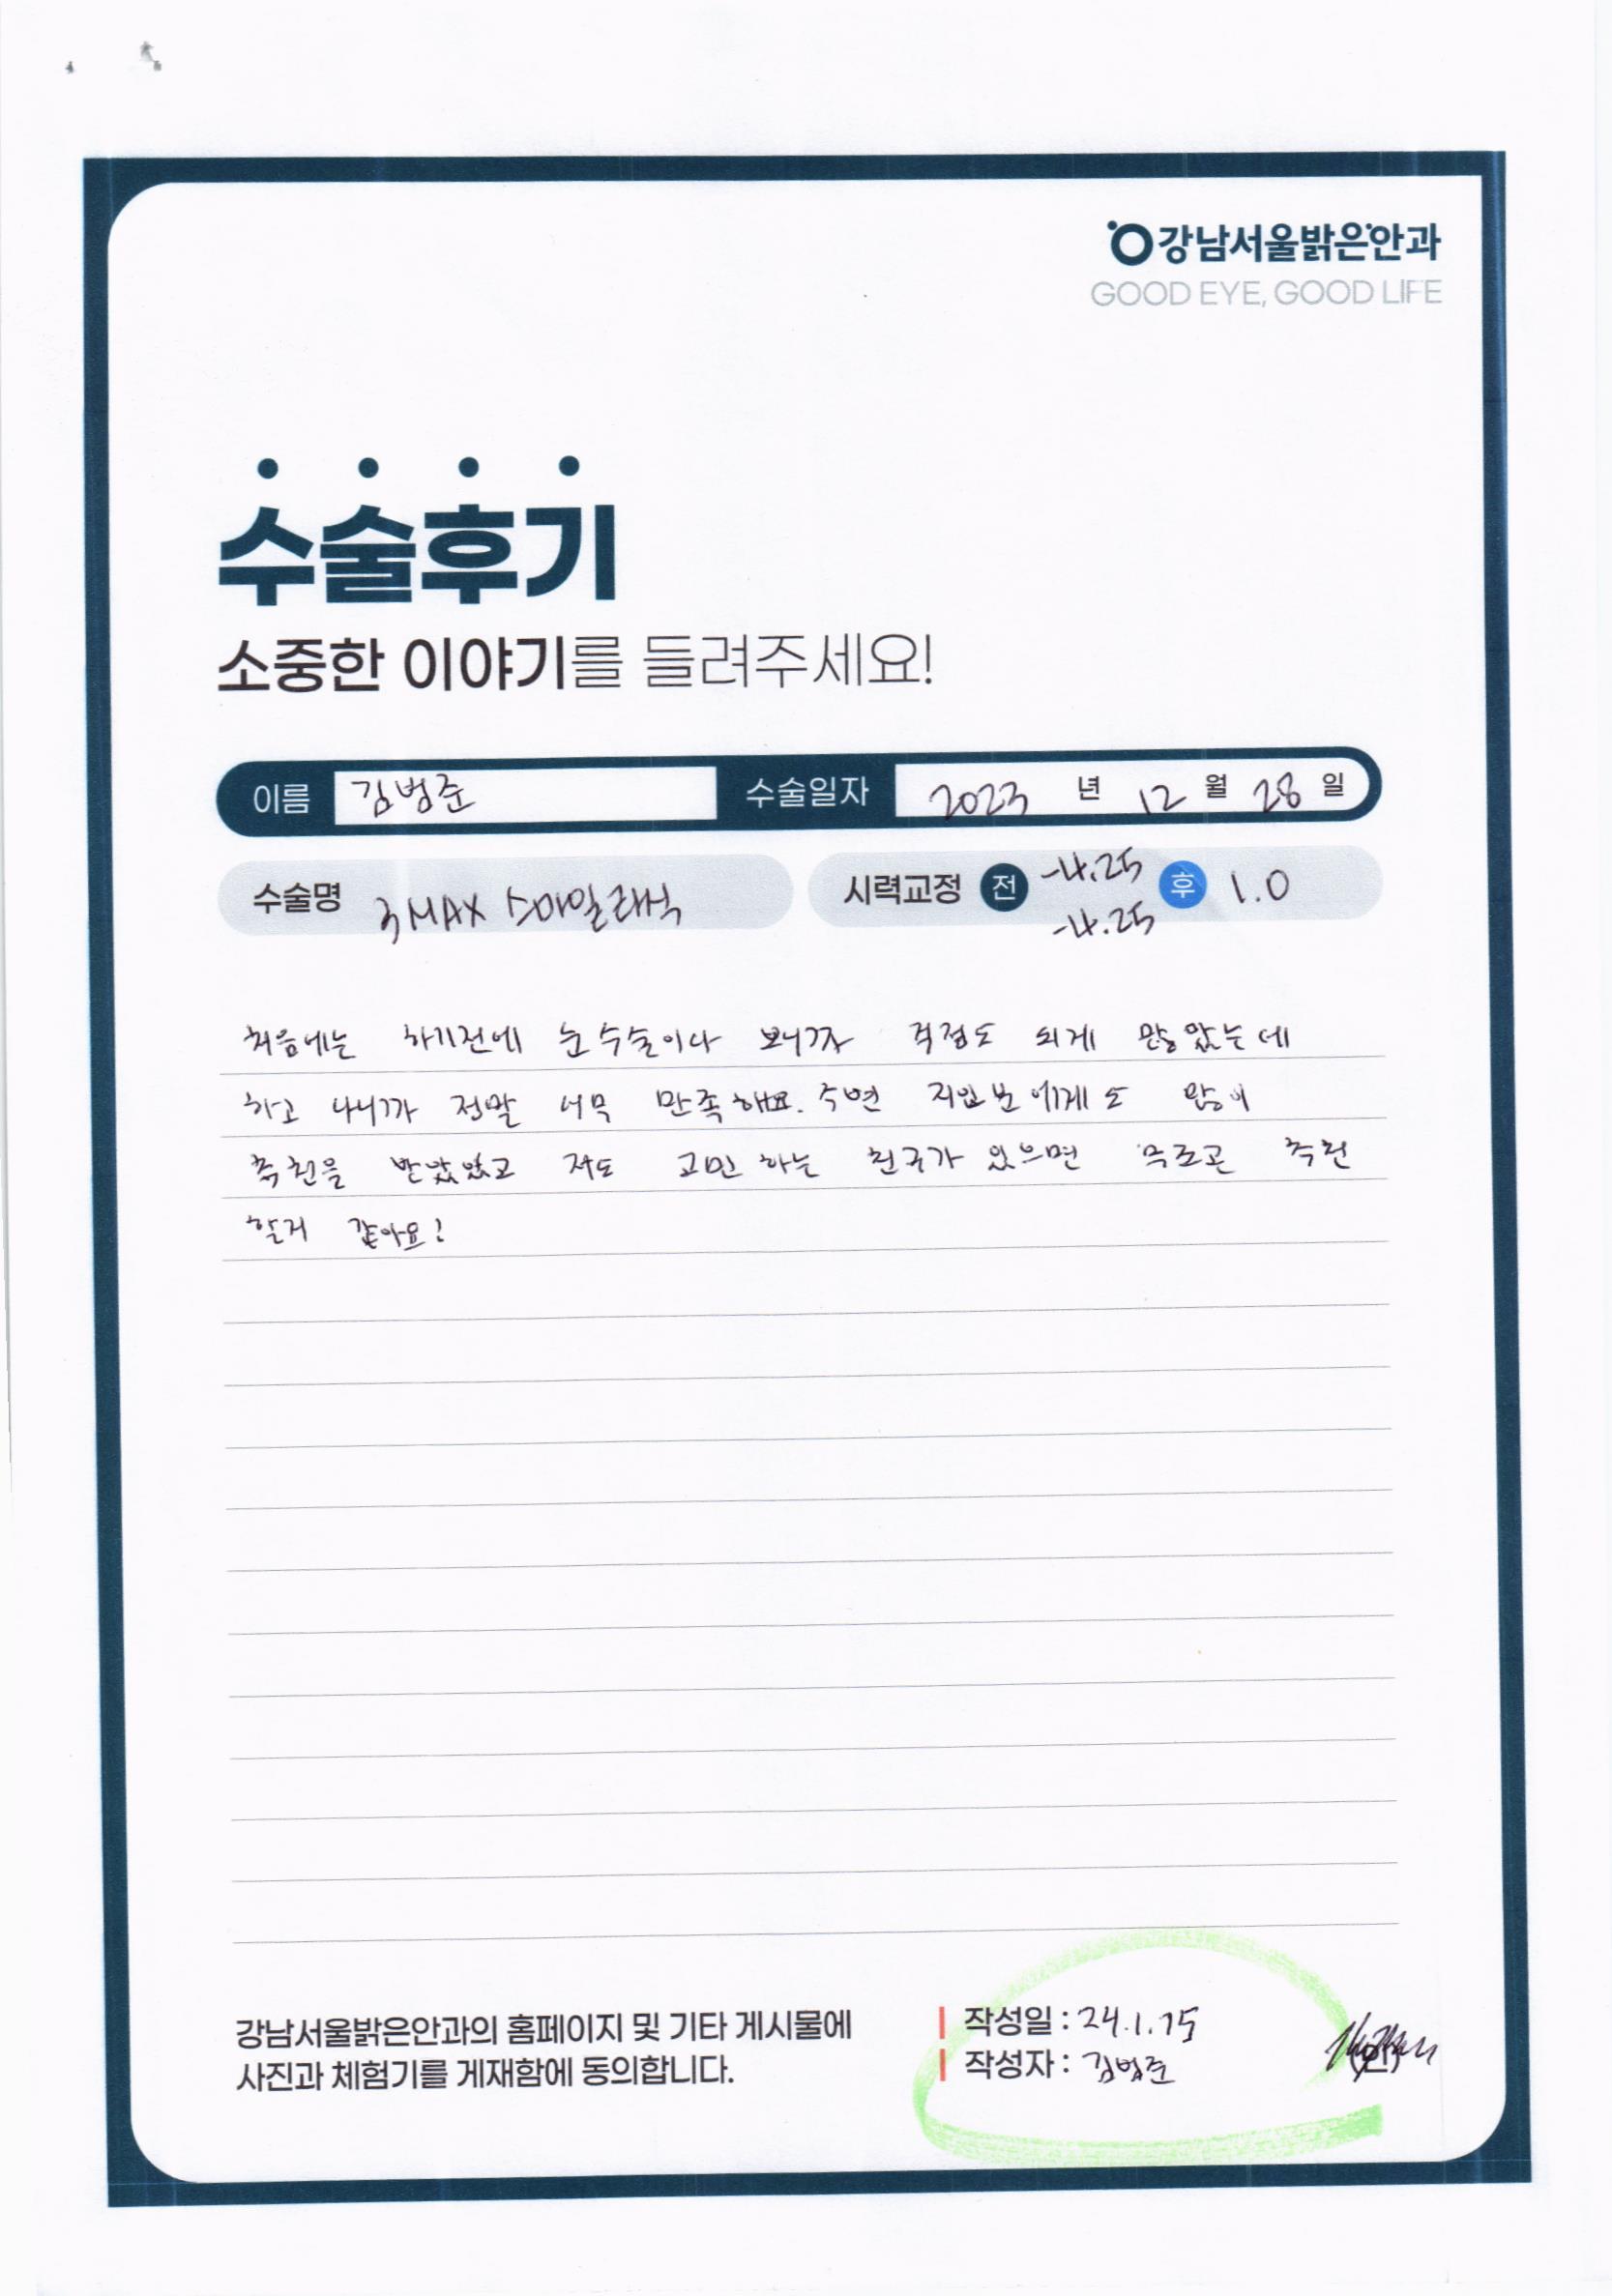 강남서울밝은안과
GOOD EYE, GOOD LIFE
수술후기
소중한 이야기를 들려주세요!
이름 김범준 수술일자 2023 년 12 월 28 일
수술명 3MAX 스마일라식 시력교정 전 -4.25 후 1.0
-4.25
처음에는 하기전에 눈수술이다 보니까 걱정도 되게 많았는데
하고 나니까 정말 너무 만족해요. 주변 지인분에게도 많이
추천을 받았었고 저도 고민 하는 친구가 있으면 무조곤 추천
할거 같아요!
강남서울밝은안과의 홈페이지 및 기타 게시물에
사진과 체험기를 게재함에 동의합니다.
작성일 : 24.1.15
작성자 : 김범준